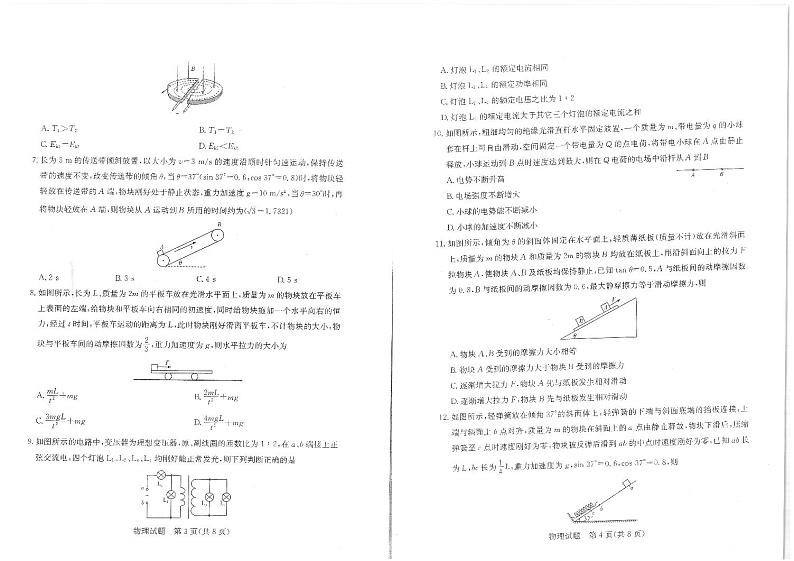 B
A. T₁>T₂
B. T₁=T₂
C. Eₖ₁=Eₖ₂
D. Eₖ₁<Eₖ₂
7. 长为 3 m 的传送带倾斜放置,以大小为 v=3 m/s 的速度沿顺时针匀速运动,保持传送
带的速度不变,改变传送带的倾角 θ,当 θ=37°(sin 37°=0.6,cos 37°=0.8)时,将物块轻
轻放在传送带的 A 端,物块刚好处于静止状态,重力加速度 g=10 m/s²,当 θ=30°时,再
将物块轻放在 A 端,则物块从 A 运动到 B 所用的时间约为(√3=1.7321)
B
A
θ
A. 2 s
B. 3 s
C. 4 s
D. 5 s
8. 如图所示,长为 L、质量为 2m 的平板车放在光滑水平面上,质量为 m 的物块放在平板车
上表面的左端,给物块和平板车向右相同的初速度,同时给物块施加一个水平向右的恒
力,经过 t 时间,平板车运动的距离为 L,此时物块刚好滑离平板车,不计物块的大小,物
块与平板车间的动摩擦因数为 2/3,重力加速度为 g,则水平拉力的大小为
F
A. mL/t²+mg
B. 2mL/t²+mg
C. 3mgL/t²+mg
D. 4mgL/t²+mg
9. 如图所示的电路中,变压器为理想变压器,原、副线圈的匝数比为 1:2,在 a、b 端接上正
弦交流电,四个灯泡 L₁、L₂、L₃、L₄ 均刚好能正常发光,则下列判断正确的是
a
b
L₁
物理试题 第 3 页(共 8 页)
A. 灯泡 L₁、L₂ 的额定电流相同
B. 灯泡 L₁、L₂ 的额定功率相同
C. 灯泡 L₂、L₃ 的额定电压之比为 1:2
D. 灯泡 L₁ 的额定电流大于其它三个灯泡的额定电流之和
10. 如图所示,粗细均匀的绝缘光滑直杆水平固定放置,一个质量为 m、带电量为 q 的小球
套在杆上可自由滑动,空间固定一个带电量为 Q 的点电荷,将带电小球在 A 点由静止
释放,小球运动到 B 点时速度达到最大,则在 Q 电荷的电场中沿杆从 A 到 B
A
B
A. 电势不断升高
B. 电场强度不断增大
C. 小球的电势能不断减小
D. 小球的加速度不断减小
11. 如图所示,倾角为 θ 的斜面体固定在水平面上,轻质薄纸板(质量不计)放在光滑斜面
上,质量为 m 的物块 A 和质量为 2m 的物块 B 均放在纸板上,用沿斜面向上的拉力 F
拉物块 A,使物块 A、B 及纸板均保持静止,已知 tan θ=0.5,A 与纸板间的动摩擦因数
为 0.8,B 与纸板间的动摩擦因数为 0.6,最大静摩擦力等于滑动摩擦力,则
F
A
B
θ
A. 物块 A、B 受到的摩擦力大小相等
B. 物块 A 受到的摩擦力大于物块 B 受到的摩擦力
C. 逐渐增大拉力 F,物块 A 先与纸板发生相对滑动
D. 逐渐增大拉力 F,物块 B 先与纸板发生相对滑动
12. 如图所示,轻弹簧放在倾角 37°的斜面体上,轻弹簧的下端与斜面底端的挡板连接,上
端与斜面上 b 点对齐,质量为 m 的物块在斜面上的 a 点由静止释放,物块下滑后,压缩
弹簧至 c 点时速度刚好为零,物块被反弹后滑到 ab 的中点时速度刚好为零,已知 ab 长
为 L,bc 长为 1/4 L,重力加速度为 g,sin 37°=0.6,cos 37°=0.8,则
a
b
c
37°
物理试题 第 4 页(共 8 页)